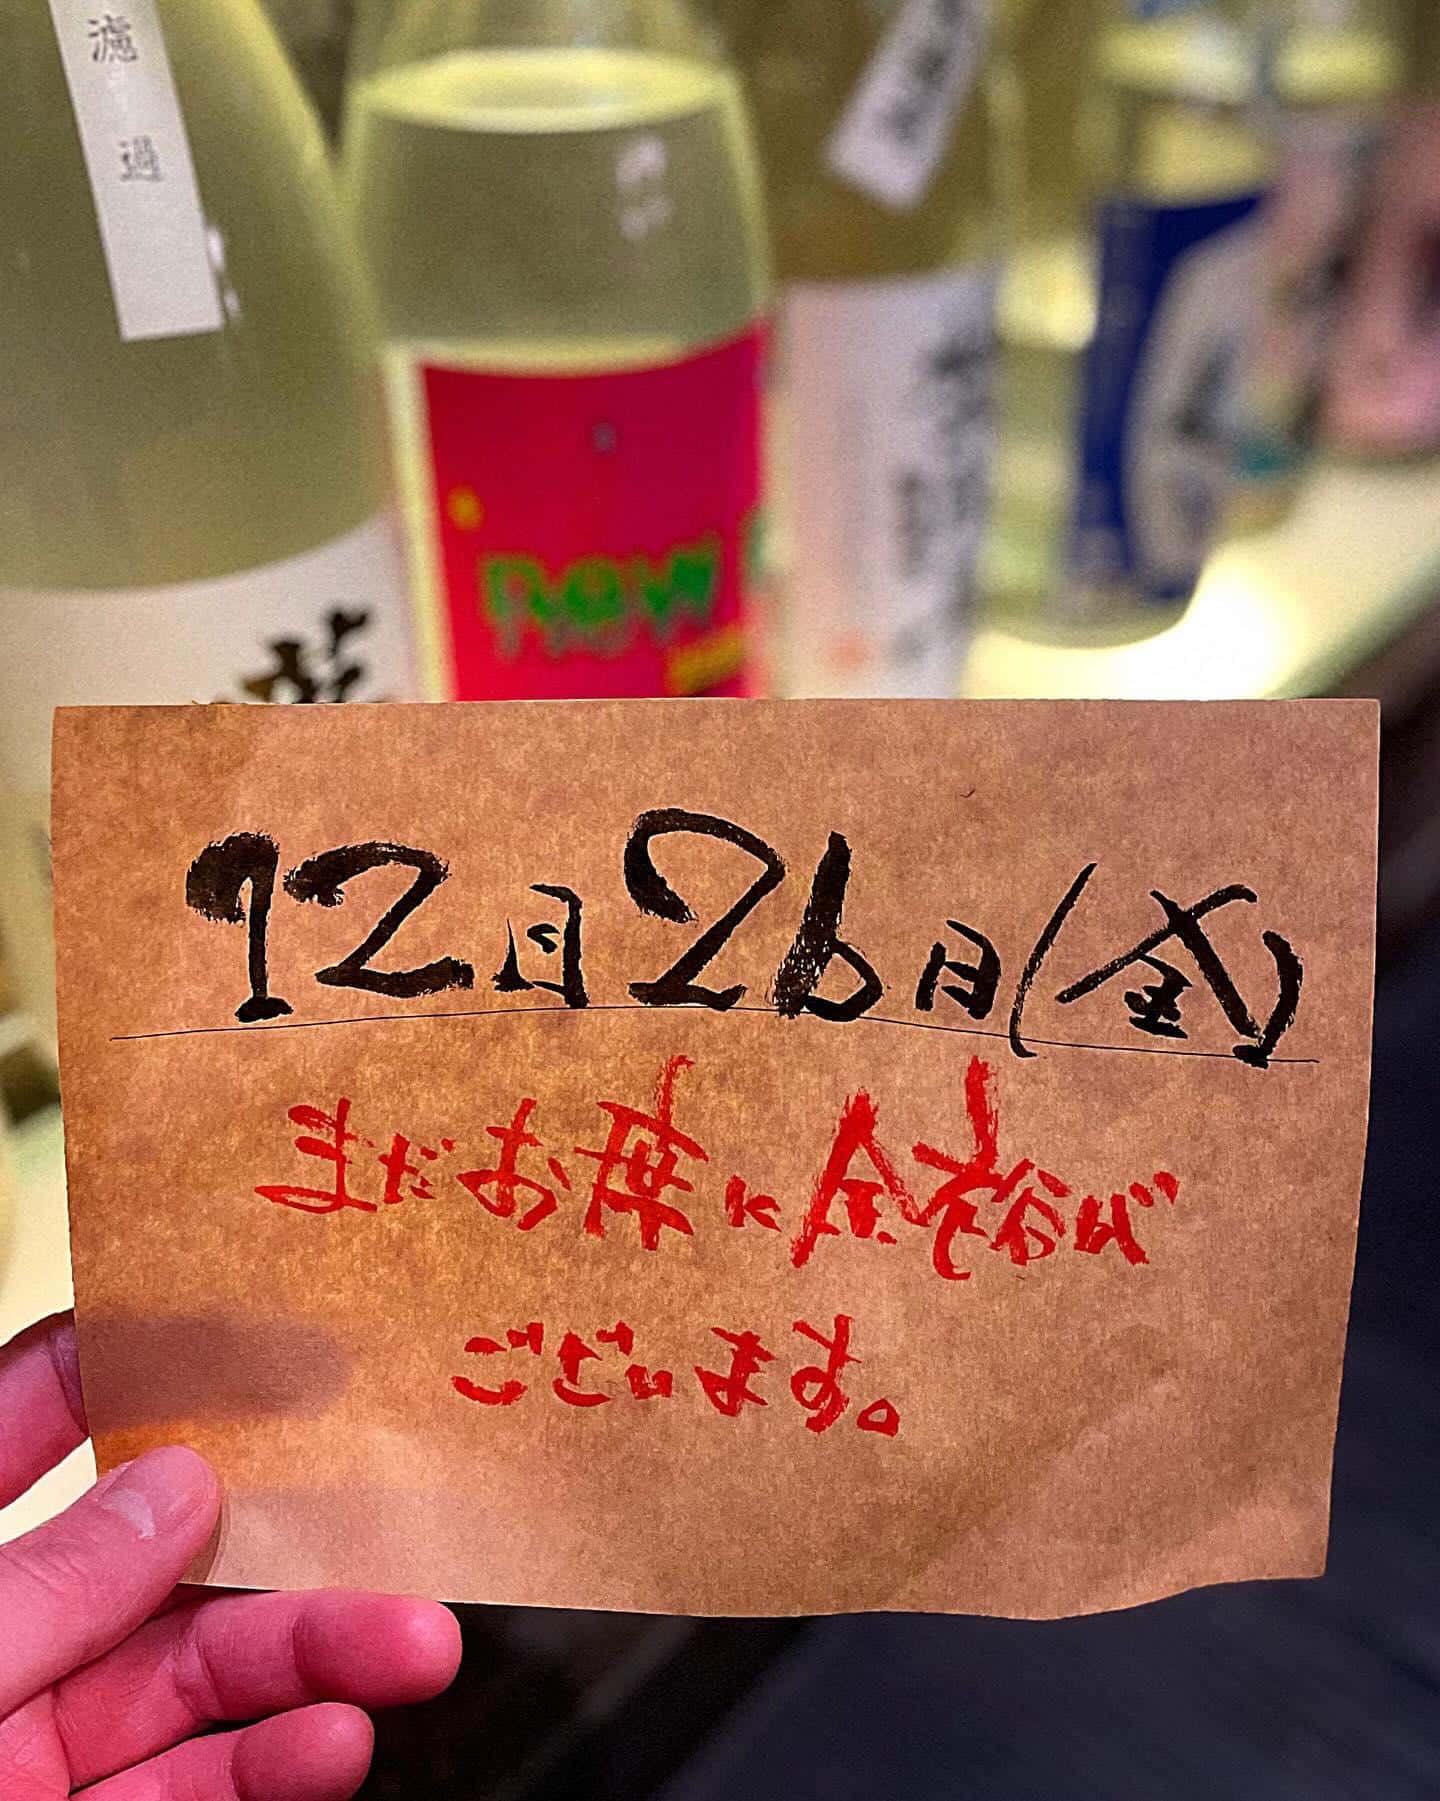 濾過
new
12月26日(金)
まだお席に余裕が
ございます。